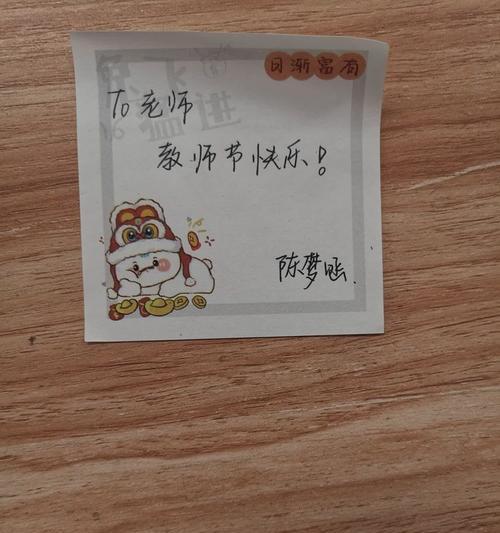 日渐富有
To老师
教师节快乐!
陈梦